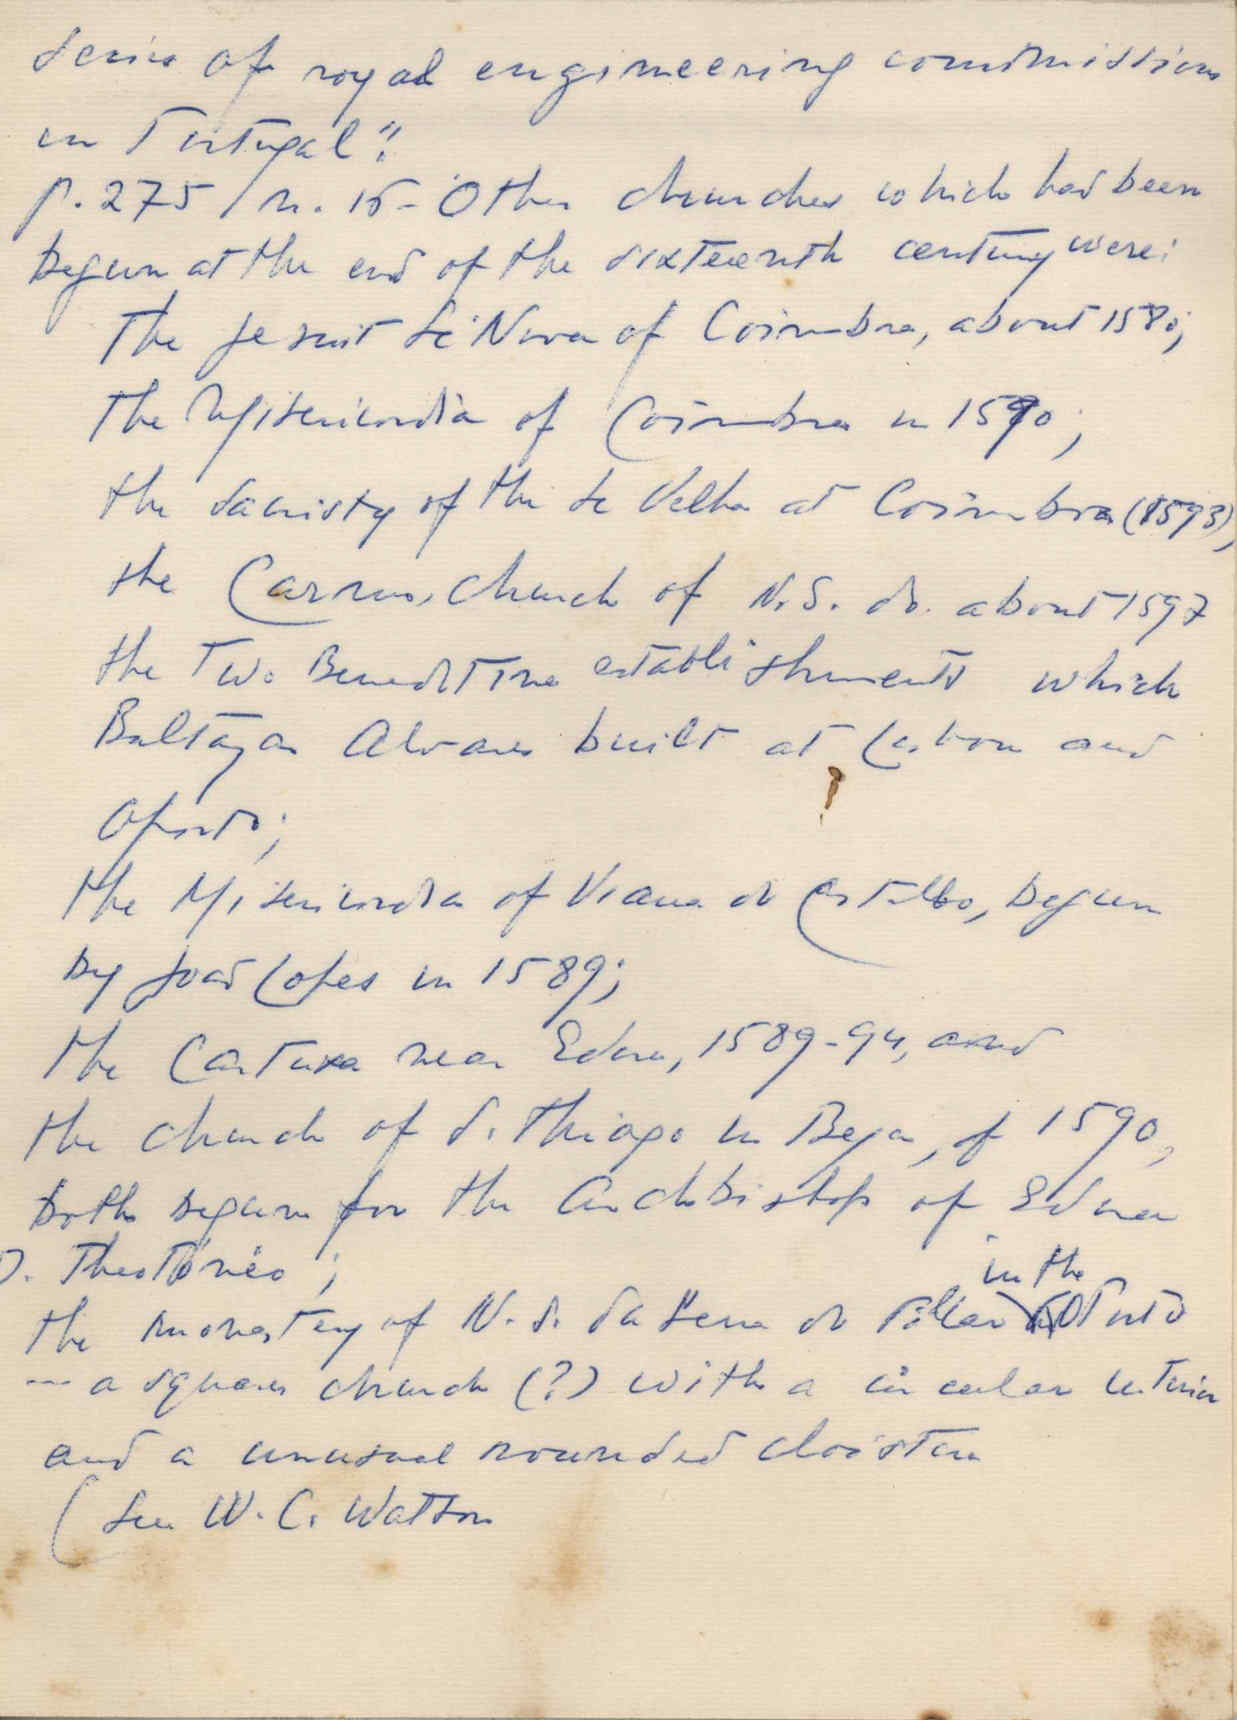 series of royal engineering commissions
in Portugal".
p. 275 / n. 15 - Other churches which had been
begun at the end of the sixteenth century were:
The Jesuit Sé Nova of Coimbra, about 1580;
the Misericordia of Coimbra in 1590;
the sacristy of the Se Velha at Coimbra (1593),
the Carmo, church of N.S. do. about 1597
the two Benedictine establishments which
Baltazar Alvares built at Lisbon and
Oporto;
the Misericordia of Viana do Castello, begun
by João Lopes in 1589;
the Cartuxa near Edora, 1589-94, and
the church of S. Thiago in Beja, of 1590,
both begun for the Archbishop of Edora
D. Theotónio;
the monastery of N. S. da Serra do Pillar in the Porto
--- a square church (?) with a circular interior
and a unusual rounded cloister
(See W. C. Watson